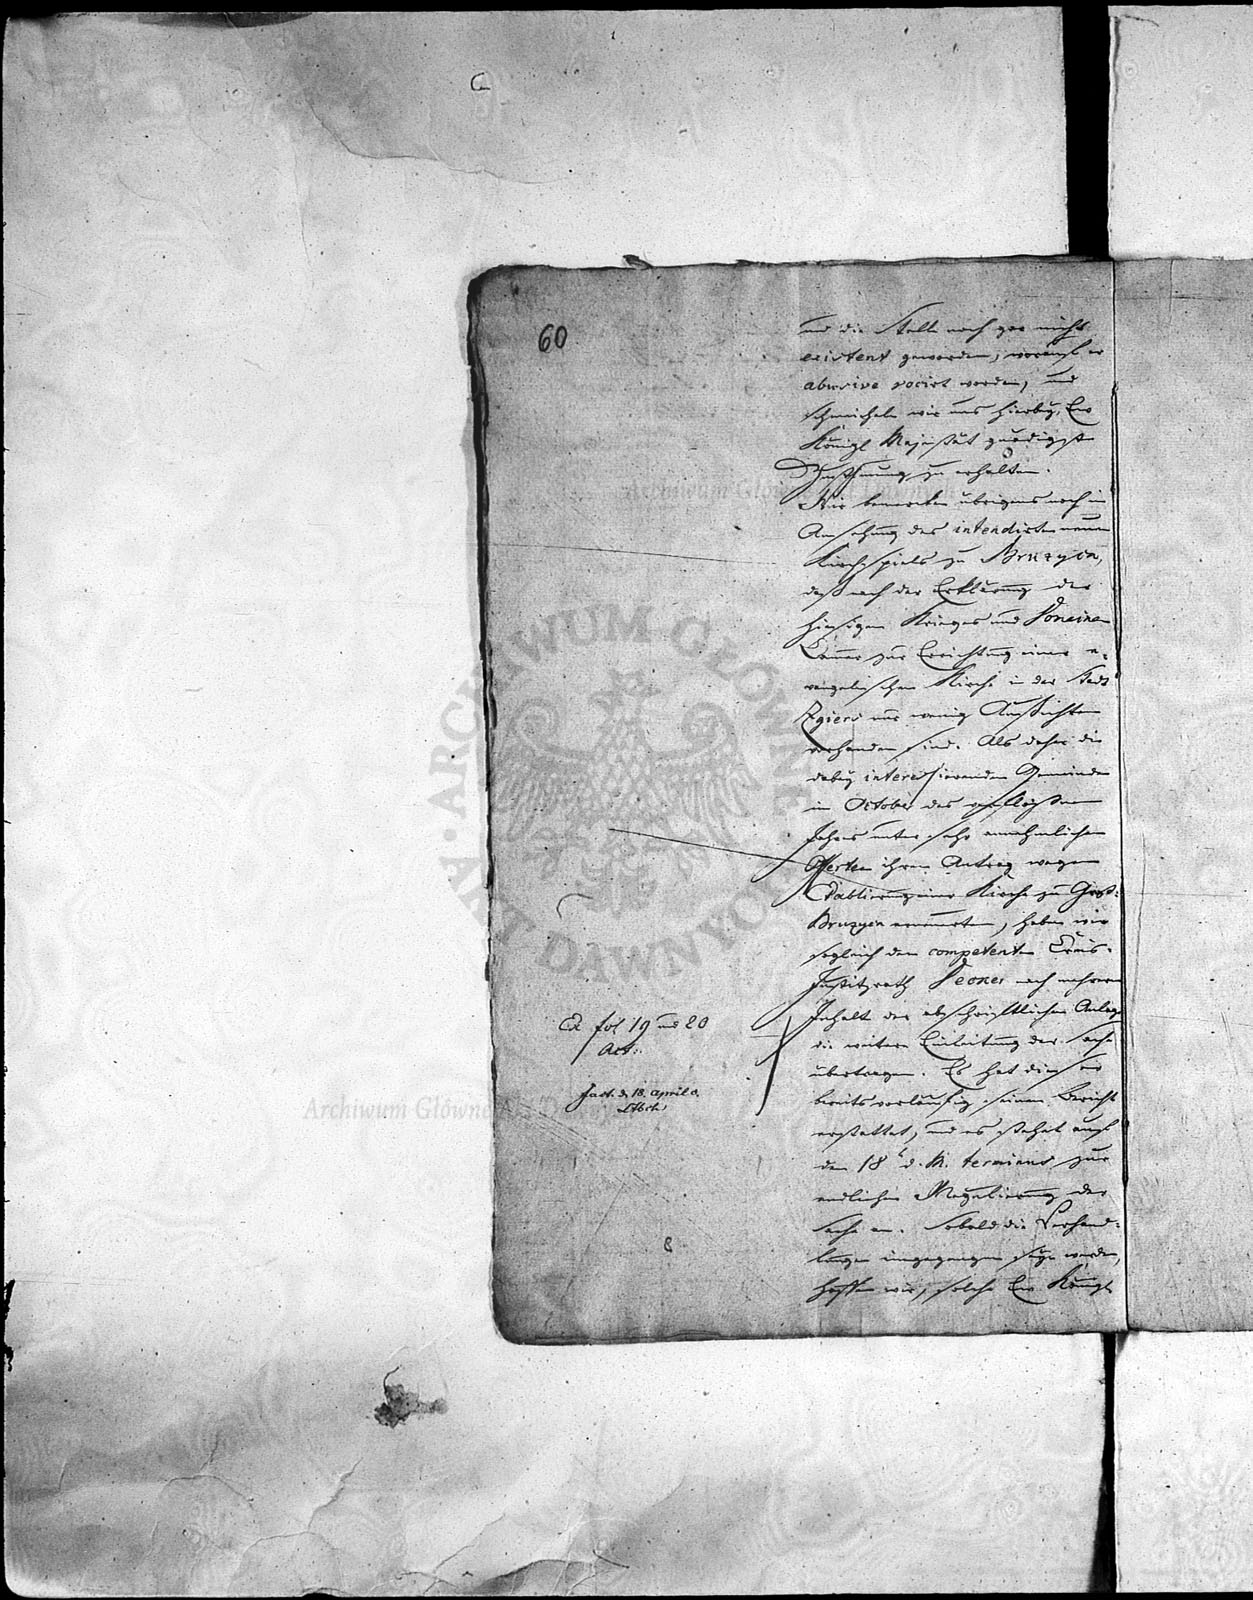 60
und die Stelle noch gar nicht
existent geworden, worauf er
abusive vocirt worden, und
schmeicheln wir uns hierbey, Ew
Königl Majestät gnädigste
zu erhalten.
Wir bemerken übrigens noch in
Ansehung des intendirten neuen
Kirchspiels zu Bruzyca,
daß nach der Erklärung der
hiesigen Krieges und Domainen
Cammer zur Errichtung einer e-
vangelischen Kirche in der Stadt
Zgierz nur wenig Aussichten
vorhanden sind. Als daher die
dabey interessirenden Gemeinden
im October des verflossenen
Jahres unter sehr annehmlichen
Offerten ihren Antrag wegen
Etablirung einer Kirche zu Groß-
Bruzyca erneuerten, haben wir
sogleich dem competenten Creis-
Justizrath nach mehrerem
Inhalt der abschriftlichen Anlage
die weitere Einleitung der Sache
übertragen. Es hat dieser
bereits vorläufig seinen Bericht
erstattet, und es stehet auf
den 18t d. M. terminus zur
endlichen Regulirung der
Sache an. Sobald die Verhand-
lungen eingegangen seyn werden,
hoffen wir, solche Ew Königl
Ex fol 19 und 20
Act:
fact. d. 18. April c.
ARCHIWUM GŁÓWNE AKT DAWNYCH
Archiwum Główne Akt Dawnych